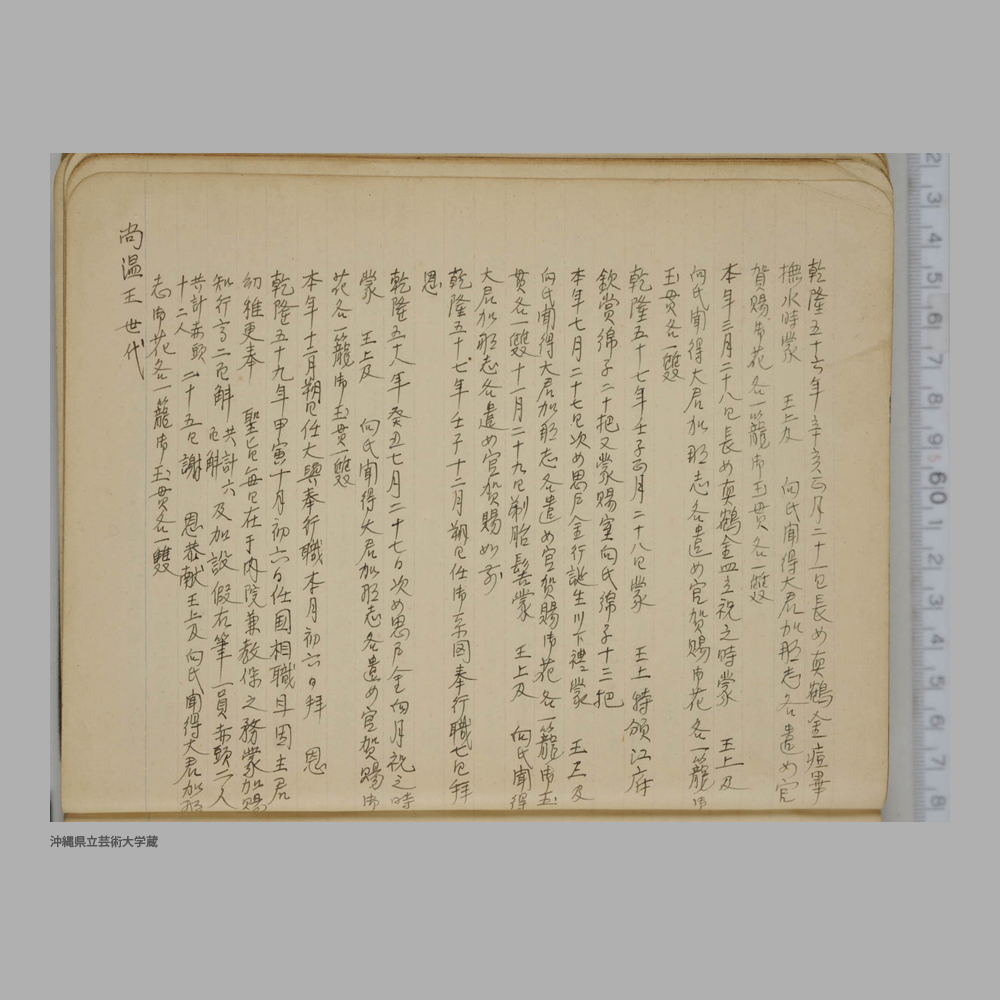 乾隆五十六年辛亥正月二十一日長女真鶴金痘畢
撫水時蒙 王上及 向氏聞得大君加那志各遣女官
賀賜御花各一籠御玉貫各一雙
本年三月二十八日長女真鶴金皿立祝之時蒙 王上及
向氏聞得大君加那志各遣女官賀賜御花各一籠御
玉貫各一雙
乾隆五十七年壬子正月二十八日蒙 王上特頒江府
欽賞綿子二十把又蒙賜室向氏綿子十三把
本年七月二十七日次女思戶金行誕生川下禮蒙 王上及
向氏聞得大君加那志各遣女官賀賜御花各一籠御玉
貫各一雙十一月二十九日剃胎髮蒙 王上及 向氏聞得
大君加那志各遣女官賀賜如前
乾隆五十七年壬子十二月朔日任御系圖奉行職七日拜
恩
乾隆五十八年癸丑七月二十七日次女思戶金四月祝之時
蒙 王上及 向氏聞得大君加那志各遣女官賀賜御
花各一籠御玉貫一雙
本年十二月朔日任大與奉行職本月初六日拜 恩
乾隆五十九年甲寅十月初六日任國相職且因主君
幼稚更奉 聖旨每日在于內院兼教保之務蒙加賜
知行高二百斛 共計六百斛 及加設假右筆一員赤頭二人
共計赤頭十二人 二十五日謝 恩恭獻王上及向氏聞得大君加那
志御花各一籠御玉貫各一雙
尚温王世代
沖縄県立芸術大学蔵